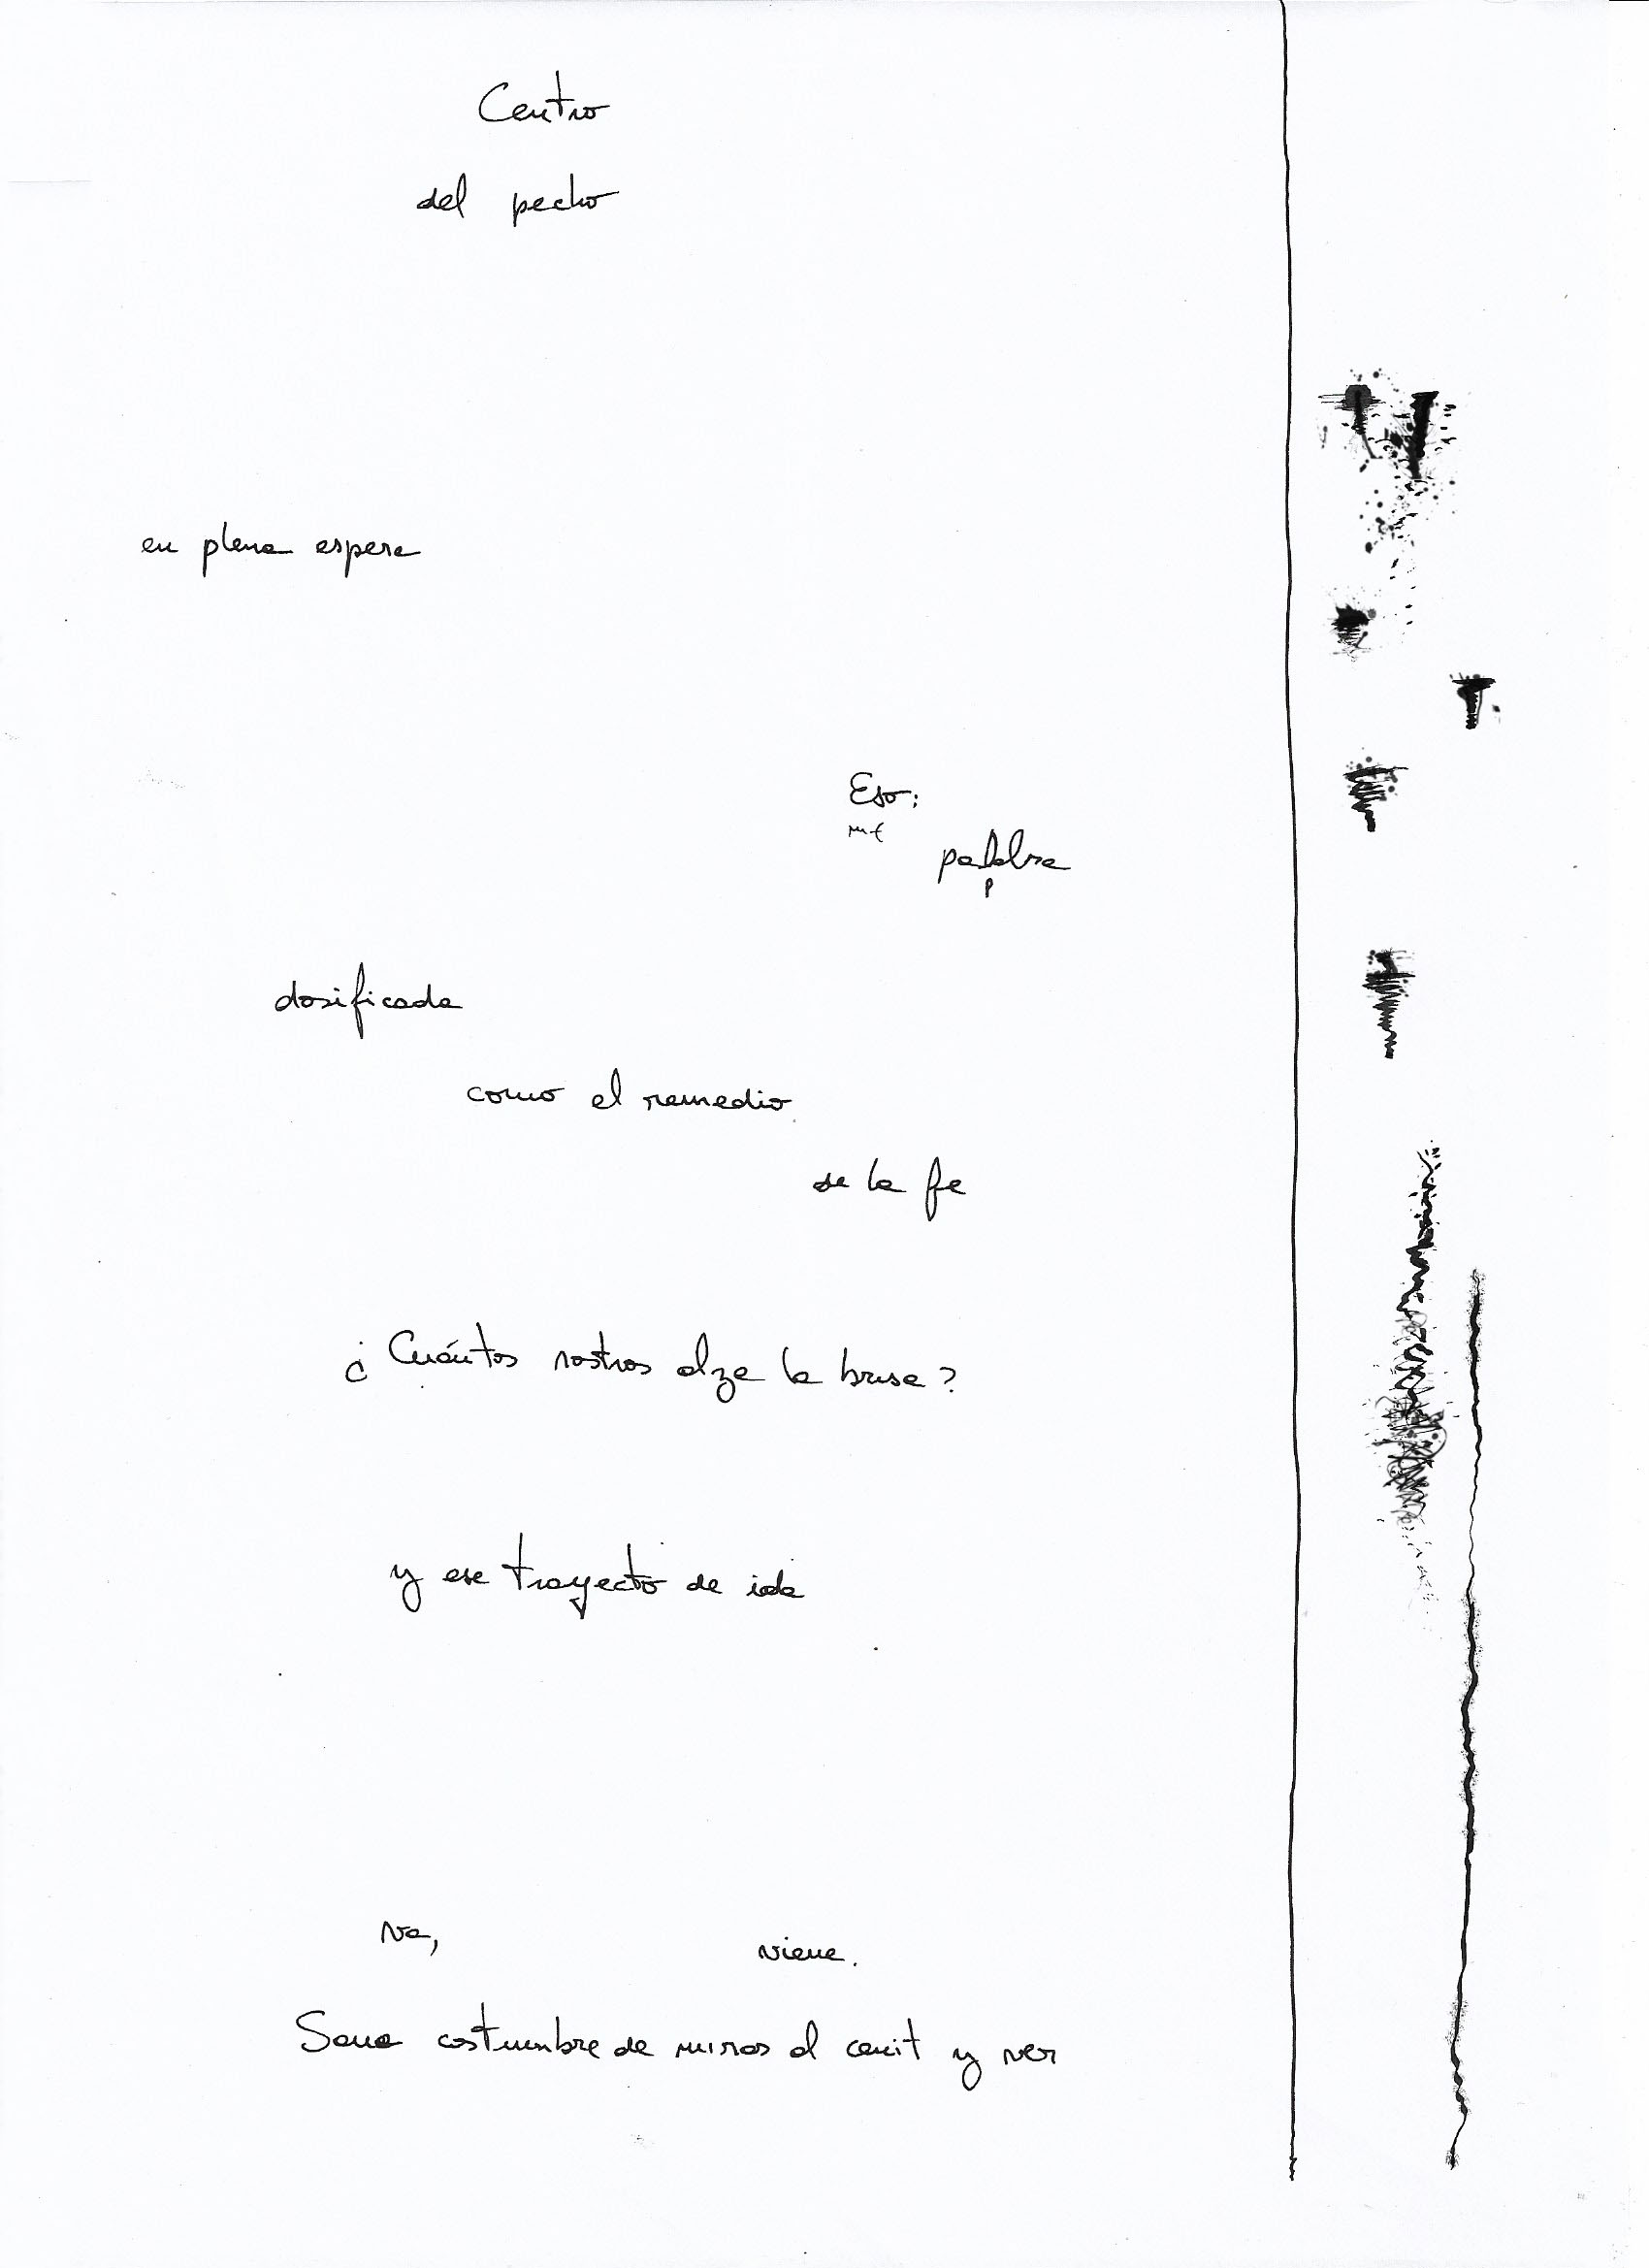 Centro
del pecho
en plena espera
Eso:
mf
palabra
p
dosificada
como el remedio
de la fe
¿Cuántos rostros alza la brisa?
y ese trayecto de ida
va, viene.
Sana costumbre de mirar al cenit y ver